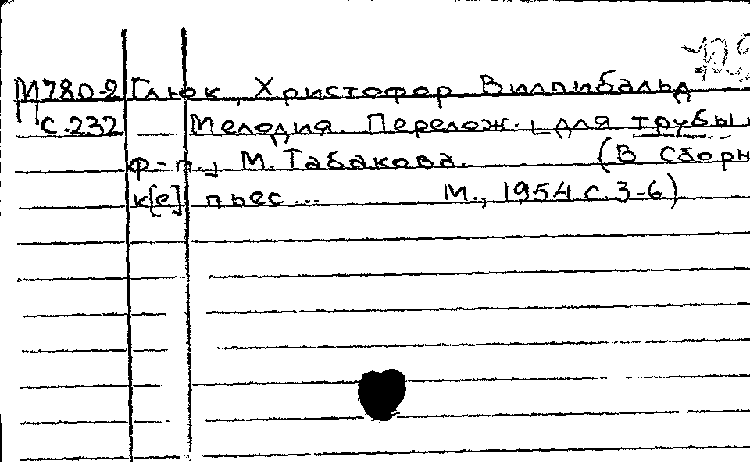 М780-2 Глюк, Христофор Виллибальд
П С.232 Мелодия. Перелож. [для трубы и
ф-п.] М. Табакова. (В Сборн
к[е] пьес... М., 1954 с. 3-6)